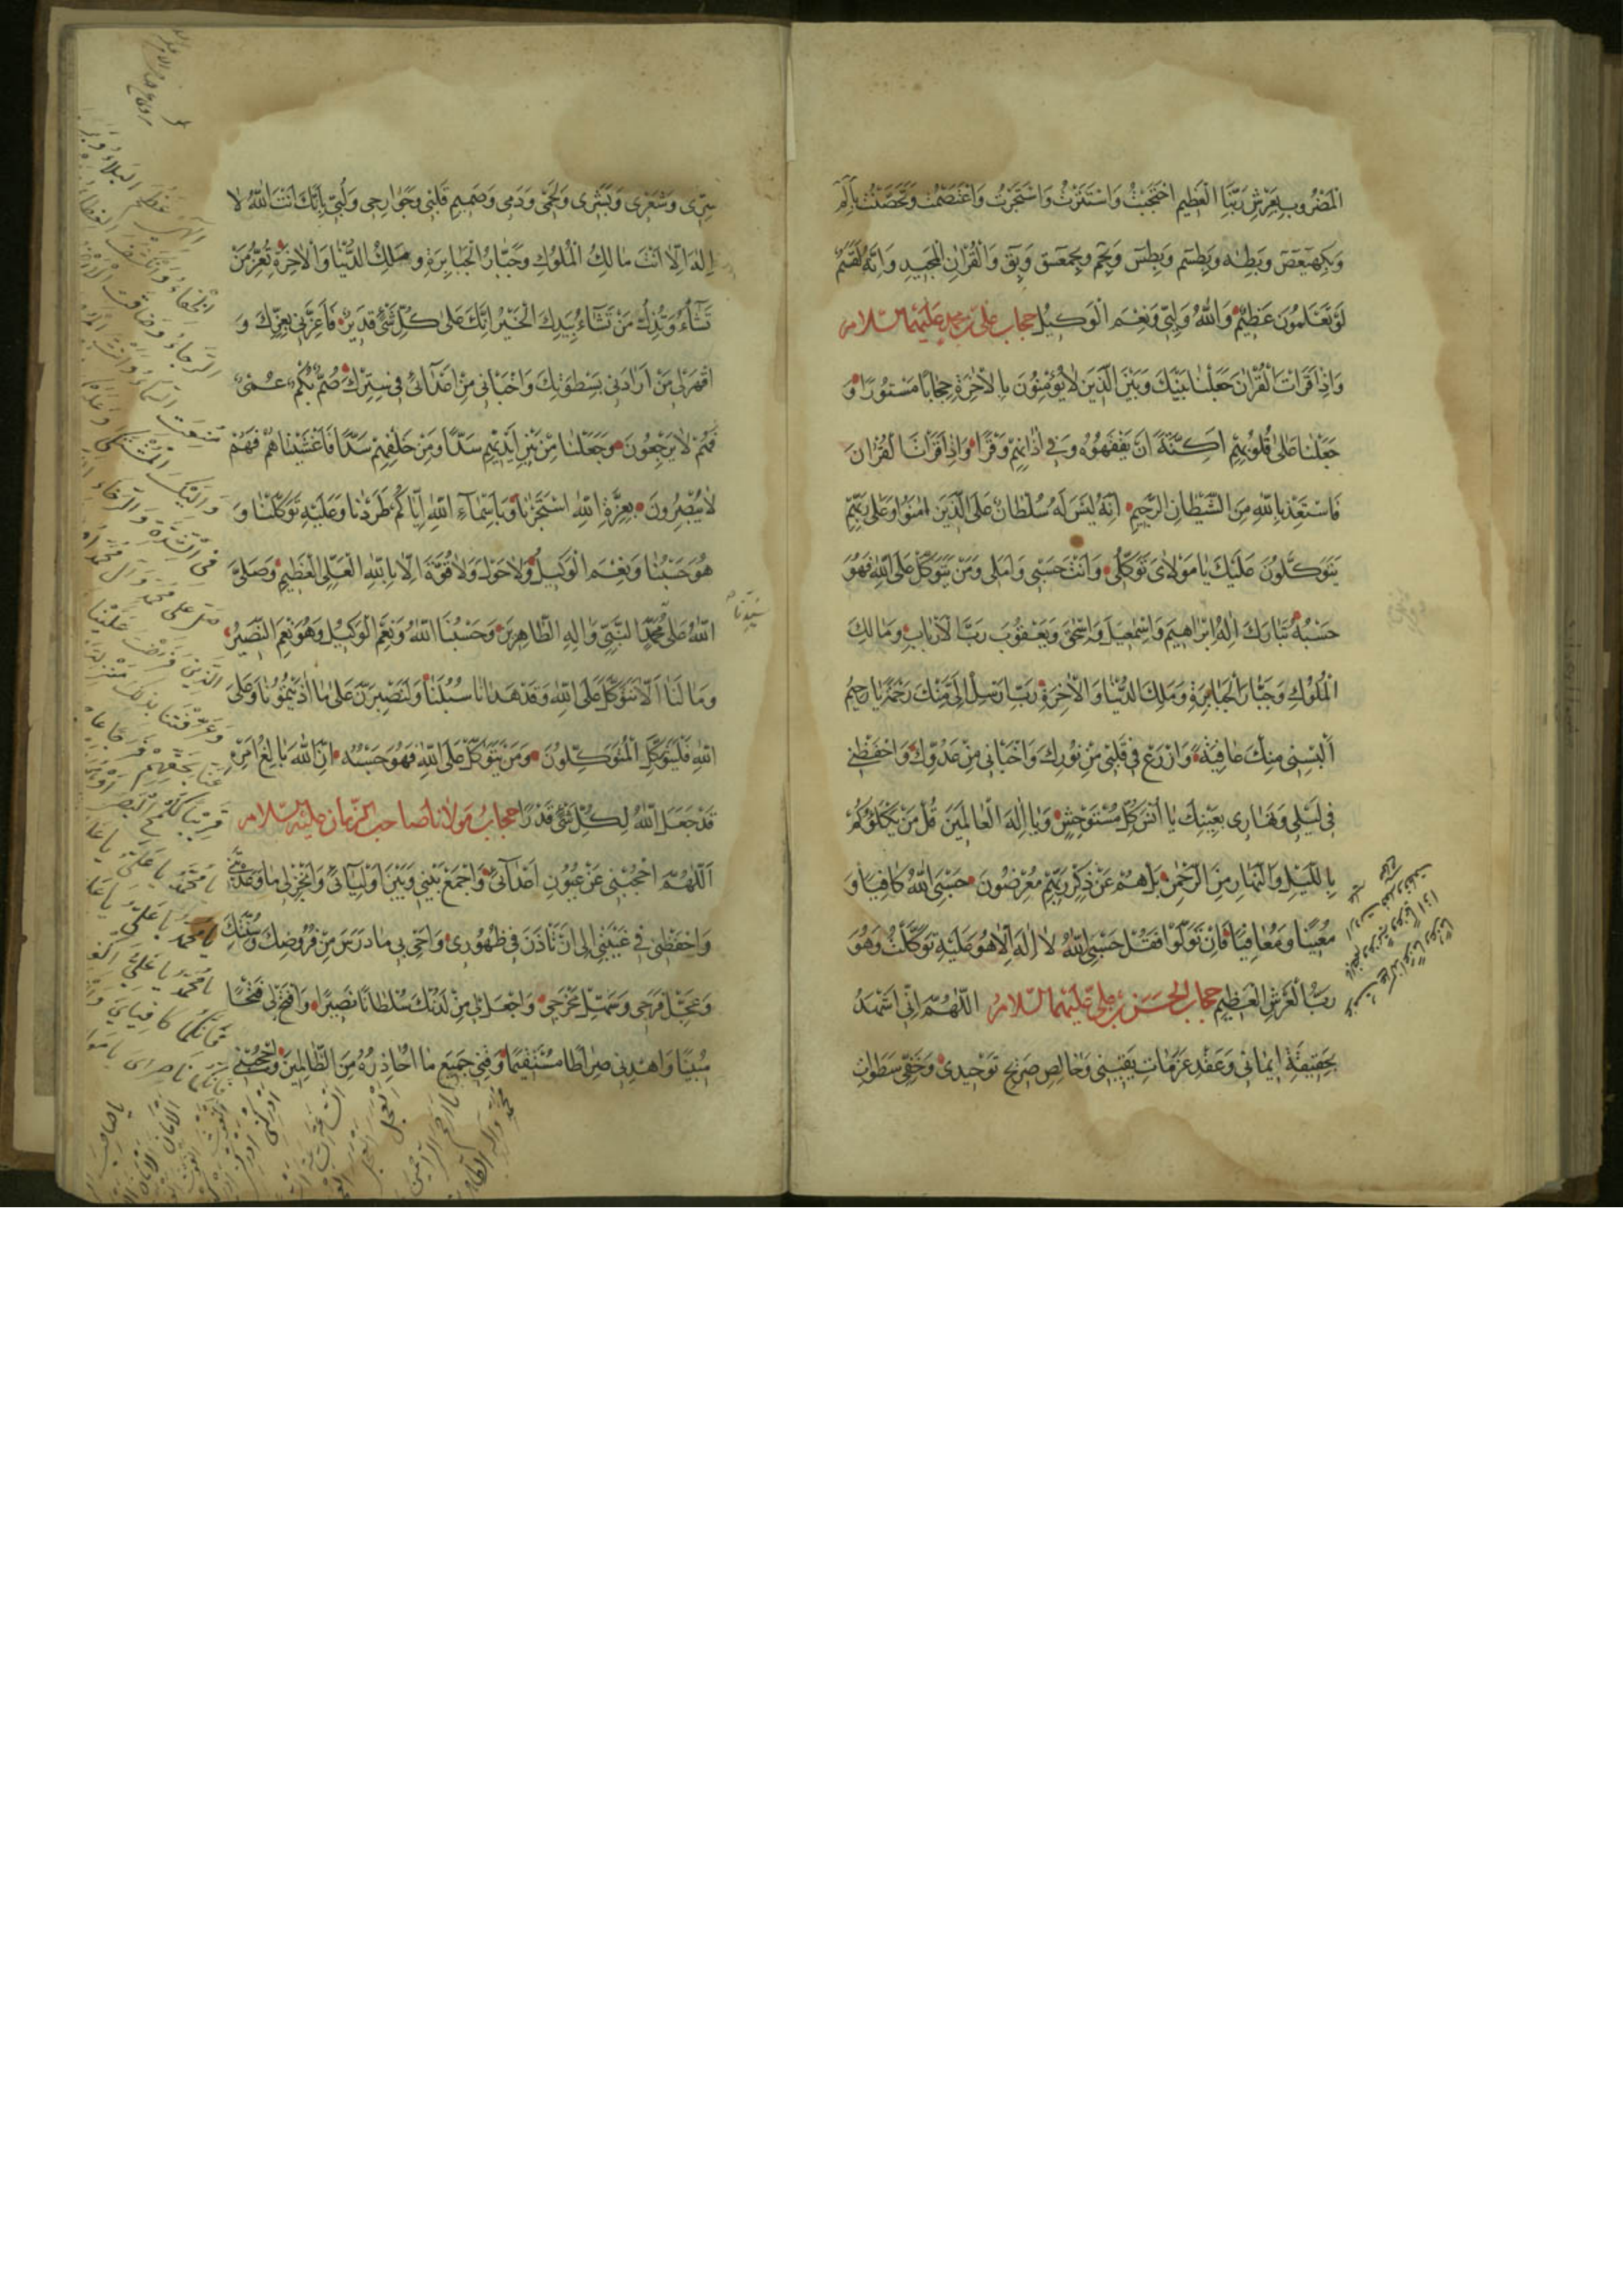 الْمَضْرُوبِ بِعَرْشِ رَبِّنَا الْعَظِيمِ احْتَجَبْتُ وَاسْتَتَرْتُ وَاسْتَجَرْتُ وَاعْتَصَمْتُ وَتَحَصَّنْتُ بِالم
وَبِكهيعص وَبِطه وَبِطسم وَبِطس وَبِحم وَبِحمعسق وَبِق وَالْقُرْانِ الْمَجِيدِ وَاِنَّهُ لَقَسَمٌ
لَوْ تَعْلَمُونَ عَظِيمٌ وَاللّٰهُ وَلِيّي وَنِعْمَ الْوَكِيلُ حجاب علي بن محمد عليهما السلام
وَاِذَا قَرَاْتَ الْقُرْانَ جَعَلْنَا بَيْنَكَ وَبَيْنَ الَّذِينَ لَا يُؤْمِنُونَ بِالْاٰخِرَةِ حِجَابًا مَسْتُورًا وَ
جَعَلْنَا عَلٰى قُلُوبِهِمْ اَكِنَّةً اَنْ يَفْقَهُوهُ وَفِي اٰذَانِهِمْ وَقْرًا وَاِذَا قَرَاْنَا الْقُرْانَ
فَاسْتَعِذْ بِاللّٰهِ مِنَ الشَّيْطَانِ الرَّجِيمِ اِنَّهُ لَيْسَ لَهُ سُلْطَانٌ عَلَى الَّذِينَ اٰمَنُوا وَعَلٰى رَبِّهِمْ
يَتَوَكَّلُونَ عَلَيْكَ يَا مَوْلَايَ تَوَكُّلِي وَاَنْتَ حَسْبِي وَاَمَلِي وَمَنْ يَتَوَكَّلْ عَلَى اللّٰهِ فَهُوَ
حَسْبُهُ تَبَارَكَ اِلٰهُ اِبْرَاهِيمَ وَاِسْمٰعِيلَ وَاِسْحٰقَ وَيَعْقُوبَ رَبَّ الْاَرْبَابِ وَمَالِكَ
الْمُلُوكِ وَجَبَّارَ الْجَبَابِرَةِ وَمَلِكَ الدُّنْيَا وَالْاٰخِرَةِ رَبِّ اَرْسِلْ اِلَيَّ مِنْكَ رَحْمَةً يَا رَحِيمُ
اَلْبِسْنِي مِنْكَ عَافِيَةً وَازْرَعْ فِي قَلْبِي مِنْ نُورِكَ وَاخْبَانِي مِنْ عَدُوِّكَ وَاحْفَظْنِي
فِي لَيْلِي وَنَهَارِي بِعَيْنِكَ يَا اُنْسَ كُلِّ مُسْتَوْحِشٍ وَيَا اِلٰهَ الْعَالَمِينَ قُلْ مَنْ يَكْلَؤُكُمْ
بِاللَّيْلِ وَالنَّهَارِ مِنَ الرَّحْمٰنِ بَلْ هُمْ عَنْ ذِكْرِ رَبِّهِمْ مُعْرِضُونَ حَسْبِيَ اللّٰهُ كَافِيًا وَ
مُعِينًا وَمُعَافِيًا فَاِنْ تَوَلَّوْا فَقُلْ حَسْبِيَ اللّٰهُ لَا اِلٰهَ اِلَّا هُوَ عَلَيْهِ تَوَكَّلْتُ وَهُوَ
رَبُّ الْعَرْشِ الْعَظِيمِ حجاب الحسن بن علي عليهما السلام اَللّٰهُمَّ اِنِّي اُشْهِدُ
بِحَقِيقَةِ اِيمَانِي وَعَقْدِ عَزَمَاتِ يَقِينِي وَخَالِصِ صَرِيحِ تَوْحِيدِي وَخَفِيِّ سَطَوَاتِ
سِرِّي وَشَعْرِي وَبَشَرِي وَلَحْمِي وَدَمِي وَصَمِيمِ قَلْبِي وَجَوَارِحِي وَلُبِّي بِاَنَّكَ اَنْتَ اللّٰهُ لَا
اِلٰهَ اِلَّا اَنْتَ مَالِكُ الْمُلُوكِ وَجَبَّارُ الْجَبَابِرَةِ وَمَلِكُ الدُّنْيَا وَالْاٰخِرَةِ تُعِزُّ مَنْ
تَشَاءُ وَتُذِلُّ مَنْ تَشَاءُ بِيَدِكَ الْخَيْرُ اِنَّكَ عَلٰى كُلِّ شَيْءٍ قَدِيرٌ فَاَعِزَّنِي بِعِزِّكَ وَ
اقْهَرْ لِي مَنْ اَرَادَنِي بِسَطْوَتِكَ وَاخْبَانِي مِنْ اَعْدَائِي فِي سِتْرِكَ صُمٌّ بُكْمٌ عُمْيٌ
فَهُمْ لَا يَرْجِعُونَ وَجَعَلْنَا مِنْ بَيْنِ اَيْدِيهِمْ سَدًّا وَمِنْ خَلْفِهِمْ سَدًّا فَاَغْشَيْنَاهُمْ فَهُمْ
لَا يُبْصِرُونَ بِعِزَّةِ اللّٰهِ اسْتَجَرْنَا وَبِاَسْمَاءِ اللّٰهِ اِيَّاكُمْ طَرَدْنَا وَعَلَيْهِ تَوَكَّلْنَا وَ
هُوَ حَسْبُنَا وَنِعْمَ الْوَكِيلُ وَلَا حَوْلَ وَلَا قُوَّةَ اِلَّا بِاللّٰهِ الْعَلِيِّ الْعَظِيمِ وَصَلَّى
اللّٰهُ عَلٰى مُحَمَّدٍ النَّبِيِّ وَاٰلِهِ الطَّاهِرِينَ وَحَسْبُنَا اللّٰهُ وَنِعْمَ الْوَكِيلُ وَهُوَ نِعْمَ النَّصِيرُ
سَيِّدِنَا
وَمَا لَنَا اَلَّا نَتَوَكَّلَ عَلَى اللّٰهِ وَقَدْ هَدَانَا سُبُلَنَا وَلَنَصْبِرَنَّ عَلٰى مَا اٰذَيْتُمُونَا وَعَلَى
اللّٰهِ فَلْيَتَوَكَّلِ الْمُتَوَكِّلُونَ وَمَنْ يَتَوَكَّلْ عَلَى اللّٰهِ فَهُوَ حَسْبُهُ اِنَّ اللّٰهَ بَالِغُ اَمْرِهِ
قَدْ جَعَلَ اللّٰهُ لِكُلِّ شَيْءٍ قَدْرًا حجاب مولانا صاحب الزمان عليه السلام
اَللّٰهُمَّ احْجُبْنِي عَنْ عُيُونِ اَعْدَائِي وَاجْمَعْ بَيْنِي وَبَيْنَ اَوْلِيَائِي وَاَنْجِزْ لِي مَا وَعَدْتَنِي
وَاحْفَظْنِي فِي غَيْبَتِي اِلٰى اَنْ تَاْذَنَ فِي ظُهُورِي وَاَحْيِ بِي مَا دَرَسَ مِنْ فُرُوضِكَ وَسُنَنِكَ
وَعَجِّلْ فَرَجِي وَسَهِّلْ مَخْرَجِي وَاجْعَلْ لِي مِنْ لَدُنْكَ سُلْطَانًا نَصِيرًا وَافْتَحْ لِي فَتْحًا
مُبِينًا وَاهْدِنِي صِرَاطًا مُسْتَقِيمًا وَقِنِي جَمِيعَ مَا اُحَاذِرُهُ مِنَ الظَّالِمِينَ وَاحْجُبْنِي
اِلٰهِي عَظُمَ الْبَلَاءُ وَبَرِحَ
الْخَفَاءُ وَانْكَشَفَ الْغِطَاءُ
الرَّجَاءُ وَضَاقَتِ الْاَرْضُ
مُنِعَتِ السَّمَاءُ وَاَنْتَ
وَاِلَيْكَ الْمُشْتَكٰى وَعَلَيْكَ
فِي الشِّدَّةِ وَالرَّخَاءِ
صَلِّ عَلٰى مُحَمَّدٍ وَاٰلِ مُحَمَّدٍ
الَّذِينَ فَرَضْتَ عَلَيْنَا
وَعَرَّفْتَنَا بِذٰلِكَ مَنْزِلَتَهُمْ
عَنَّا بِحَقِّهِمْ فَرَجًا عَاجِلًا
قَرِيبًا كَلَمْحِ الْبَصَرِ اَوْ
يَا مُحَمَّدُ يَا عَلِيُّ يَا عَلِيُّ
يَا مُحَمَّدُ يَا عَلِيُّ يَا
يَا مُحَمَّدُ يَا عَلِيُّ
فَاِنَّكُمَا كَافِيَايَ
فَاِنَّكُمَا نَاصِرَايَ يَا مَوْلَا
يَا صَاحِبَ
الْاَمَانَ الْاَمَانَ
الْغَوْثَ الْغَوْثَ
اَدْرِكْنِي اَدْرِكْنِي
الْعَجَلَ الْعَجَلَ
يَا اَرْحَمَ الرَّاحِمِينَ
مُحَمَّدٍ وَاٰلِهِ الطَّاهِرِينَ